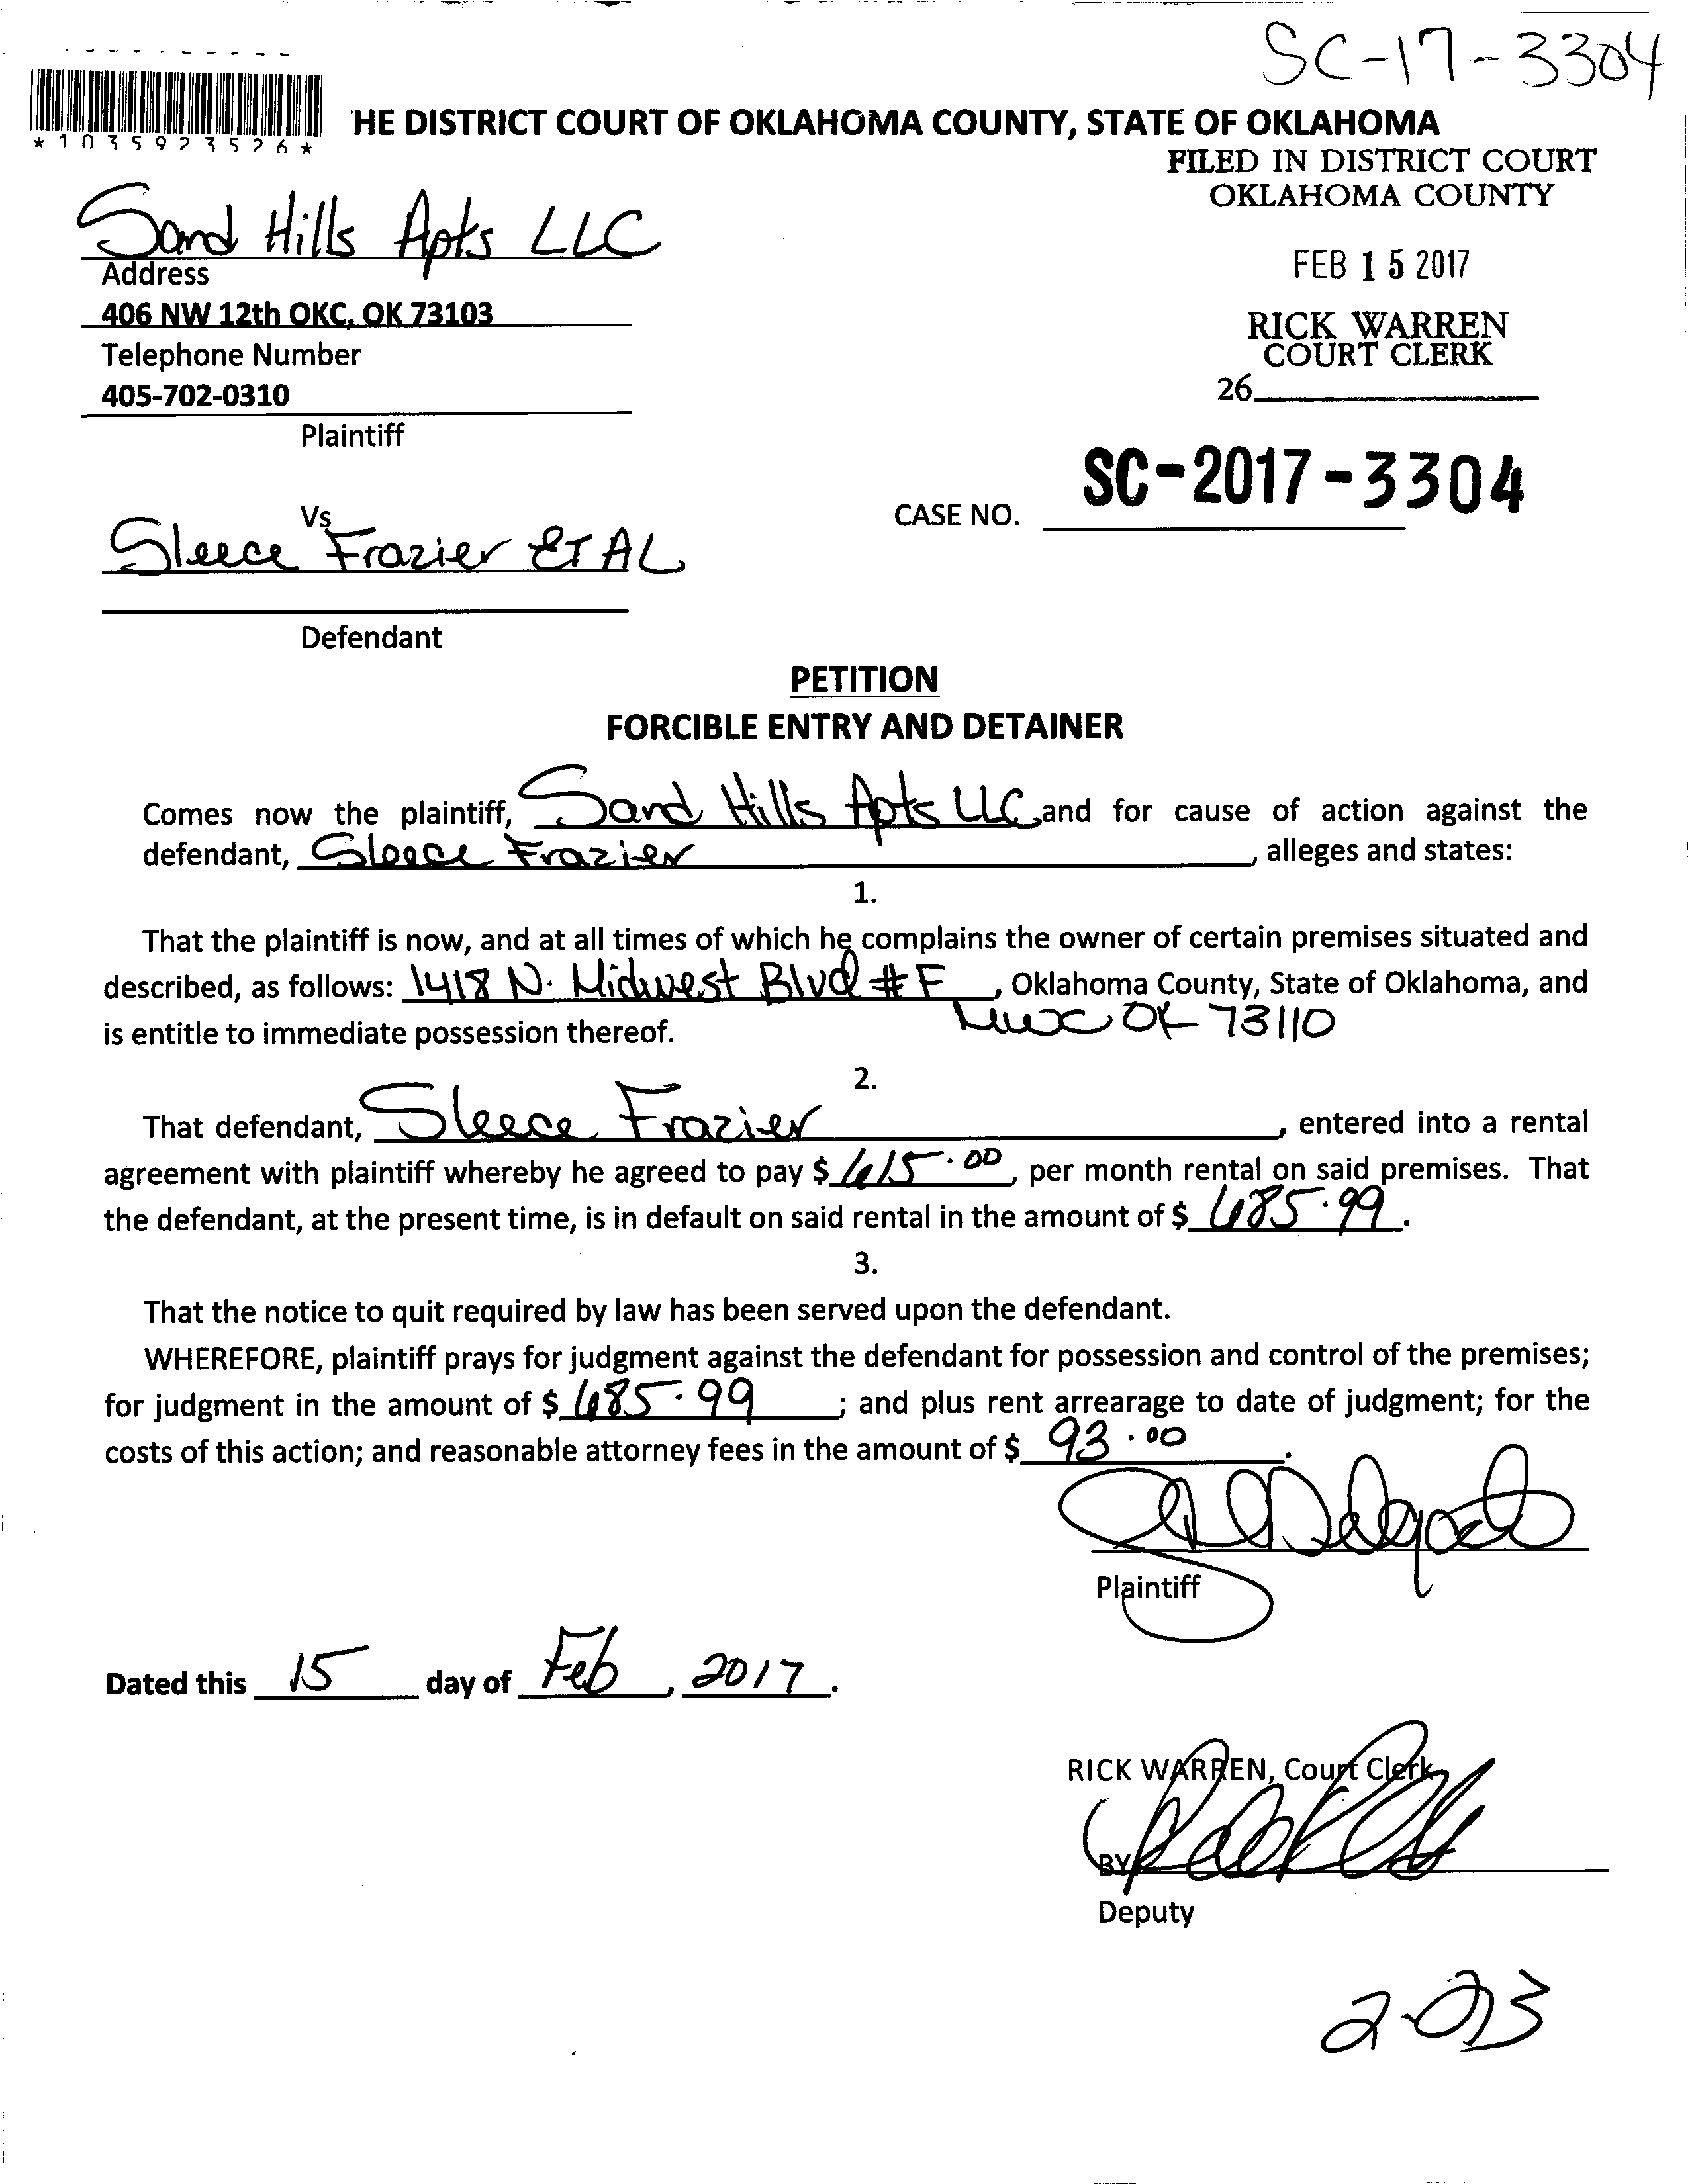 SC-17-3304
*1035923526*
HE DISTRICT COURT OF OKLAHOMA COUNTY, STATE OF OKLAHOMA
FILED IN DISTRICT COURT
OKLAHOMA COUNTY
Sand Hills Apts LLC
Address
FEB 15 2017
406 NW 12th OKC, OK 73103
RICK WARREN
COURT CLERK
Telephone Number
26
405-702-0310
Plaintiff
SC-2017-3304
CASE NO.
Vs
Sleece Frazier ET AL
Defendant
PETITION
FORCIBLE ENTRY AND DETAINER
Comes now the plaintiff, Sand Hills Apts LLC and for cause of action against the
defendant, Sleece Frazier, alleges and states:
1.
That the plaintiff is now, and at all times of which he complains the owner of certain premises situated and
described, as follows: 1418 N. Midwest Blvd #F, Oklahoma County, State of Oklahoma, and
MWC OK 73110
is entitle to immediate possession thereof.
2.
That defendant, Sleece Frazier, entered into a rental
agreement with plaintiff whereby he agreed to pay $ 615.00, per month rental on said premises. That
the defendant, at the present time, is in default on said rental in the amount of $ 685.99.
3.
That the notice to quit required by law has been served upon the defendant.
WHEREFORE, plaintiff prays for judgment against the defendant for possession and control of the premises;
for judgment in the amount of $ 685.99; and plus rent arrearage to date of judgment; for the
costs of this action; and reasonable attorney fees in the amount of $ 93.00.
Delgado
Plaintiff
Dated this 15 day of Feb, 2017.
RICK WARREN, Court Clerk
BY
Deputy